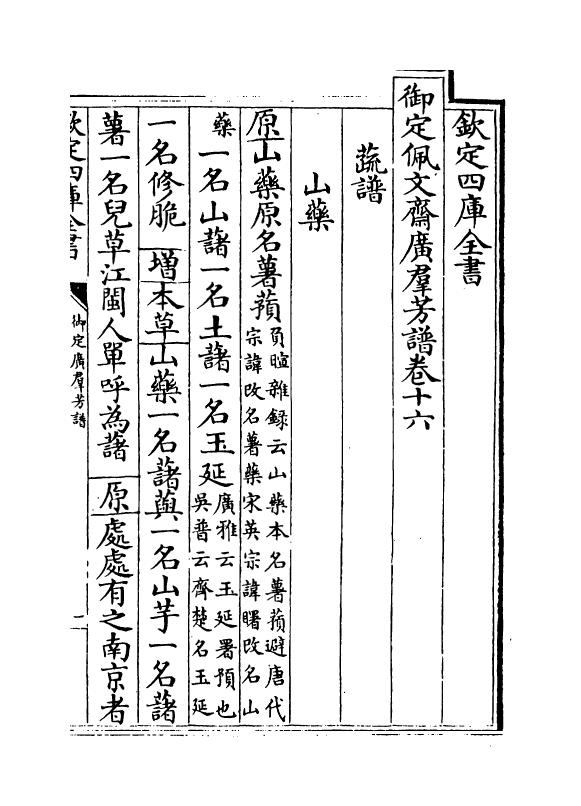 欽定四庫全書
御定佩文齋廣羣芳譜卷十六
蔬譜
山藥
原山藥原名薯蕷
負暄雜録云山藥本名薯蕷避唐代
宗諱改名薯藥宋英宗諱曙改名山
藥
一名山藷一名土藷一名玉延
廣雅云玉延署預也
吳普云齊楚名玉延
一名修脆增本草山藥一名藷藇一名山芋一名藷
薯一名兒草江閩人單呼為藷原處處有之南京者
欽定四庫全書
御定廣羣芳譜
一